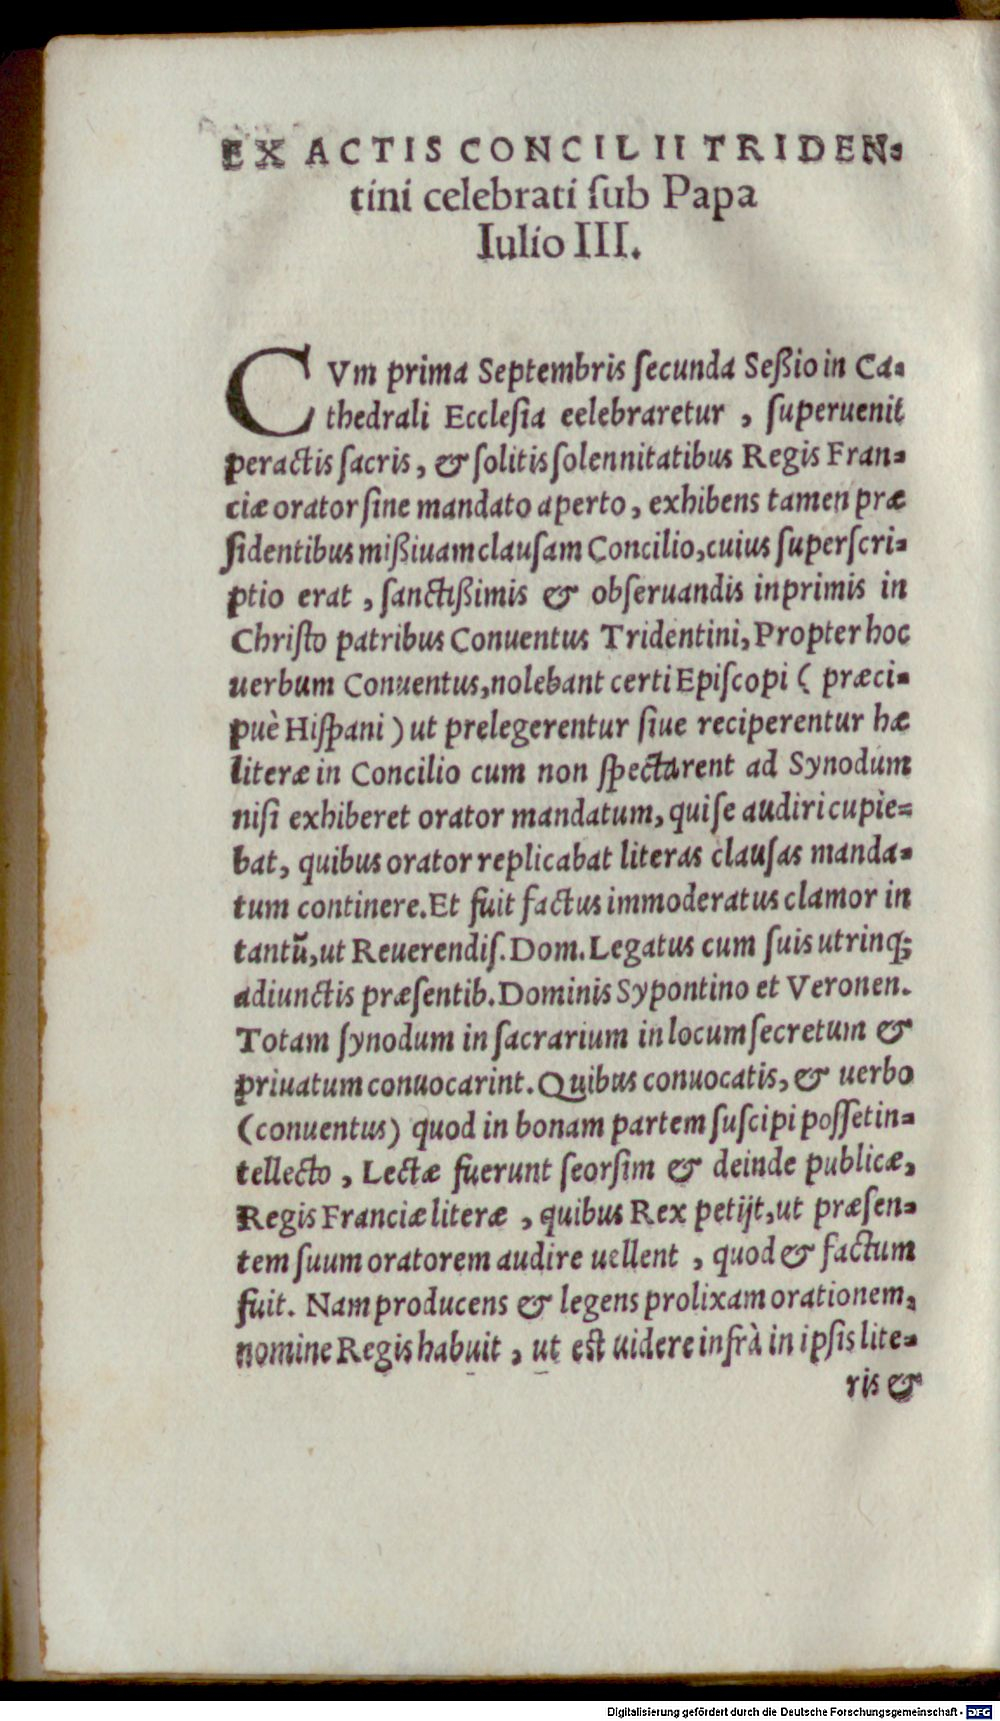 EX ACTIS CONCILII TRIDEN-
tini celebrati ſub Papa
Iulio III.
CVm prima Septembris ſecunda Seßio in Ca-
thedrali Eccleſia eelebraretur, ſuperuenit
peractis ſacris, & ſolitis ſolennitatibus Regis Fran-
ciæ orator ſine mandato aperto, exhibens tamen præ
ſidentibus mißiuam clauſam Concilio, cuius ſuperſcri-
ptio erat, ſanctißimis & obſeruandis inprimis in
Chriſto patribus Conuentus Tridentini, Propter hoc
uerbum Conuentus, nolebant certi Epiſcopi ( præci-
puè Hiſpani ) ut prelegerentur ſiue reciperentur hæ
literæ in Concilio cum non ſpectarent ad Synodum
niſi exhiberet orator mandatum, qui ſe audiri cupie-
bat, quibus orator replicabat literas clauſas manda-
tum continere. Et fuit factus immoderatus clamor in
tantũ, ut Reuerendiſ. Dom. Legatus cum ſuis utrinq;
adiunctis præſentib. Dominis Sypontino et Veronen.
Totam ſynodum in ſacrarium in locum ſecretum &
priuatum conuocarint. Quibus conuocatis, & uerbo
(conuentus) quod in bonam partem ſuſcipi poſſet in-
tellecto, Lectæ fuerunt ſeorſim & deinde publicæ,
Regis Franciæ literæ, quibus Rex petijt, ut præſen-
tem ſuum oratorem audire uellent, quod & factum
fuit. Nam producens & legens prolixam orationem,
nomine Regis habuit, ut eſt uidere infrà in ipſis lite-
ris &
Digitalisierung gefördert durch die Deutsche Forschungsgemeinschaft - DFG